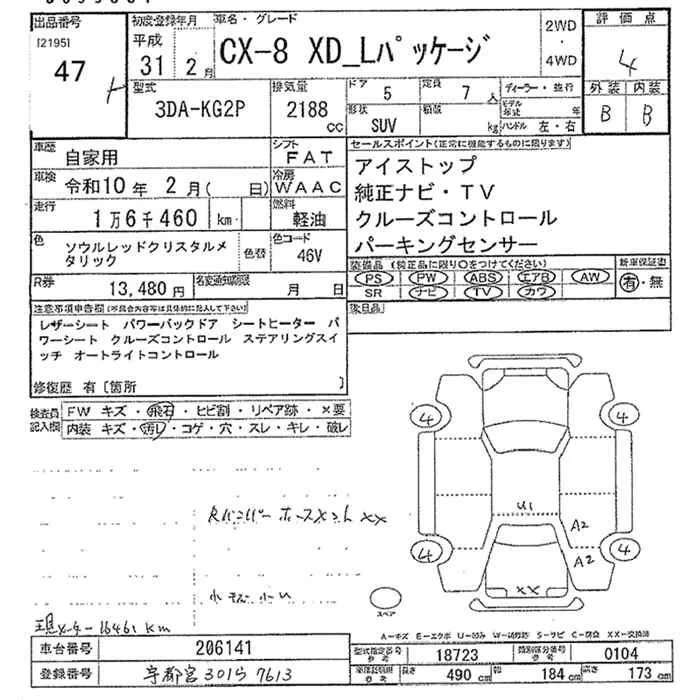 出品番号
[2195]
47
初度登録年月
平成
31年 2月
車名・グレード
CX-8 XD_Lパッケージ
2WD
・
4WD
評価点
4
外装 内装
B B
型式
3DA-KG2P
排気量
2188
cc
ドア
5
定員
7人
形状
SUV
積載
kg
ディーラー・並行
モデル年式 年
ハンドル 左・右
車歴
自家用
シフト
FAT
車検
令和10年 2月( 日)
冷房
WAAC
走行
1万6千460 km
燃料
軽油
色
ソウルレッドクリスタルメ
タリック
色替
色コード
46V
R券
13,480円
名変通知期限
月 日
セールスポイント(正常に機能するものに限ります)
アイストップ
純正ナビ・TV
クルーズコントロール
パーキングセンサー
装備品 (純正品に限り○をつけてください)
PS PW ABS エアB AW
SR ナビ TV カワ
新車保証書
有・無
後日品
注意事項申告欄(不具合内容等は具体的に記入して下さい)
レザーシート パワーバックドア シートヒーター パ
ワーシート クルーズコントロール ステアリングスイ
ッチ オートライトコントロール
修復歴 有[箇所 ]
検査員
記入欄
FW キズ・飛石・ヒビ割・リペア跡・×要
内装 キズ・汚レ・コゲ・穴・スレ・キレ・破レ
4
4
4
4
U1
A2
A2
XX
スペア
XX
小キズ 小U
現メーター 16461 km
A-キズ E-エクボ U-凹み W-補修跡 S-サビ C-腐食 XX-交換済
車台番号
206141
登録番号
宇都宮 301ら 7613
型式指定番号
参考
18723
類別区分番号
参考
0104
参考
長さ 490 cm
幅 184 cm
高さ 173 cm